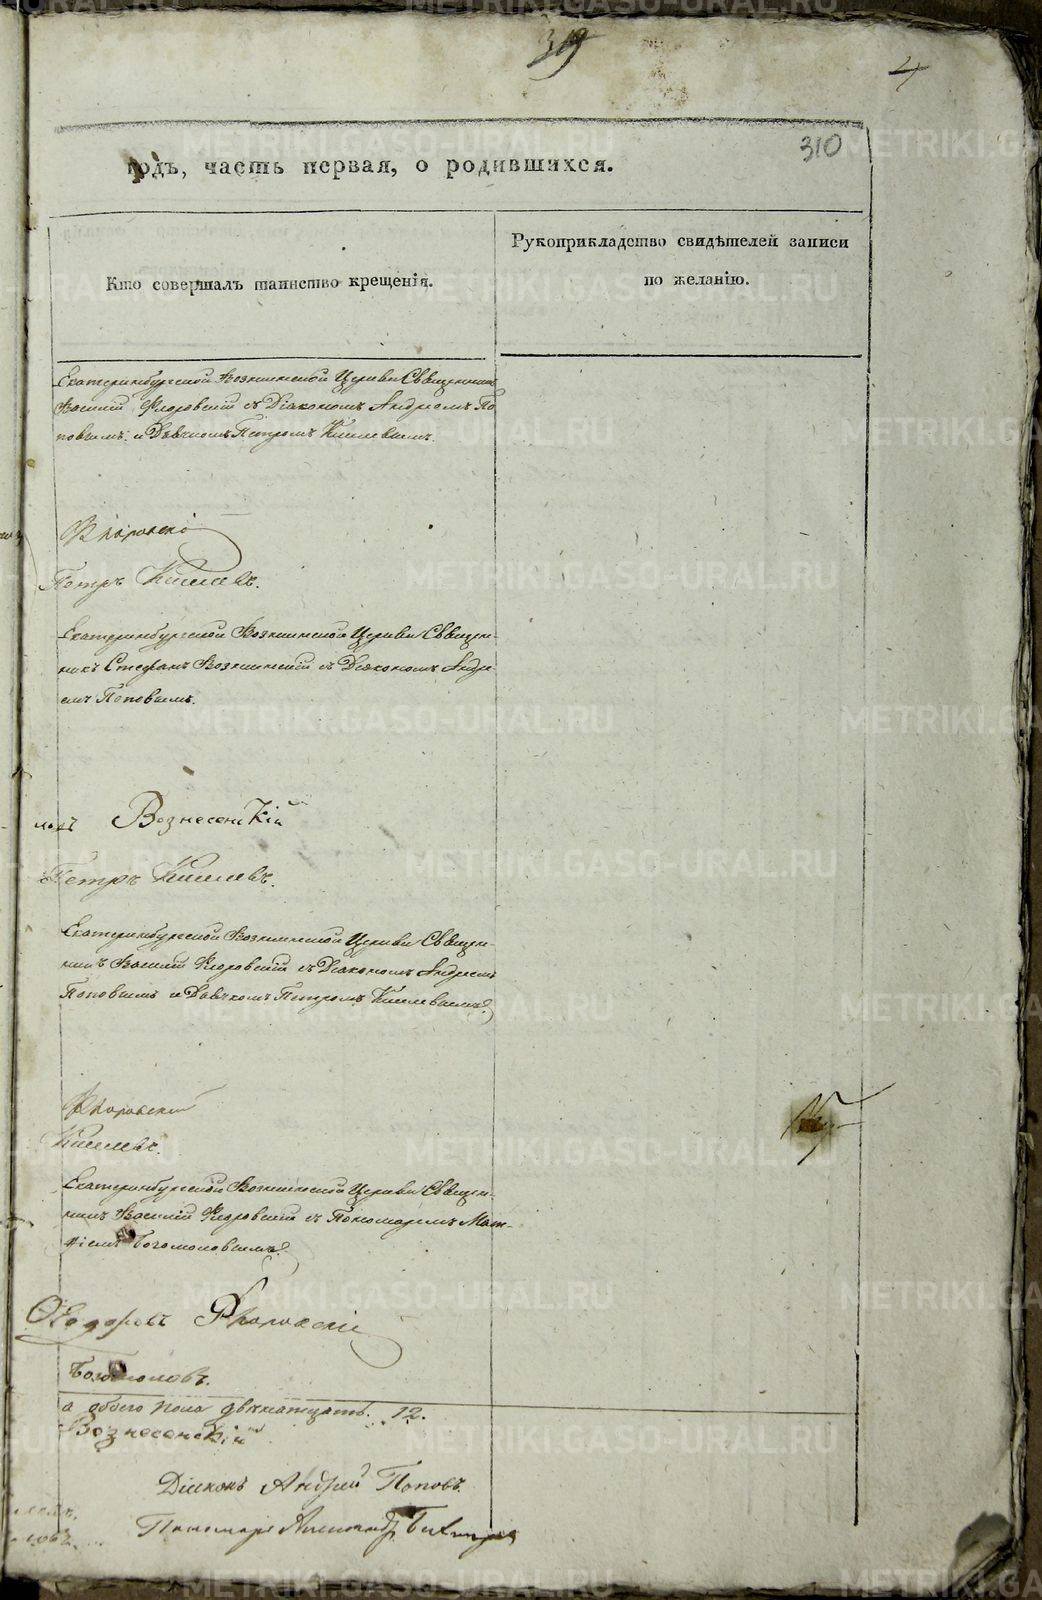 319
4
310
годъ, часть первая, о родившихся.
Кто совершалъ таинство крещенія.
Рукоприкладство свидѣтелей записи
по желанію.
Екатеринбургской Вознесенской Церкви Священникъ
Василій Флоровскій съ Діакономъ Андреемъ По
повымъ и Дьячкомъ Петромъ Киселевымъ.
Флоровскій
Петръ Киселевъ.
Екатеринбургской Вознесенской Церкви Священ-
никъ Стефанъ Вознесенскій съ Діакономъ Андре
емъ Поповымъ.
Вознесенскій
Петръ Киселевъ.
Екатеринбургской Вознесенской Церкви Священ-
никъ Василій Флоровскій съ Діакономъ Андреемъ
Поповымъ и Дьячкомъ Петромъ Киселевымъ.
Флоровскій
Киселевъ.
Екатеринбургской Вознесенской Церкви Священ-
никъ Василій Флоровскій съ Пономаремъ Мат-
ѳіемъ Богомоловымъ.
Флоровскій
Богомоловъ.
а обоего пола двенатцать. 12.
Вознесенскій
Діаконъ Андрей Поповъ.
Пономарь
METRIKI.GASO-URAL.RU